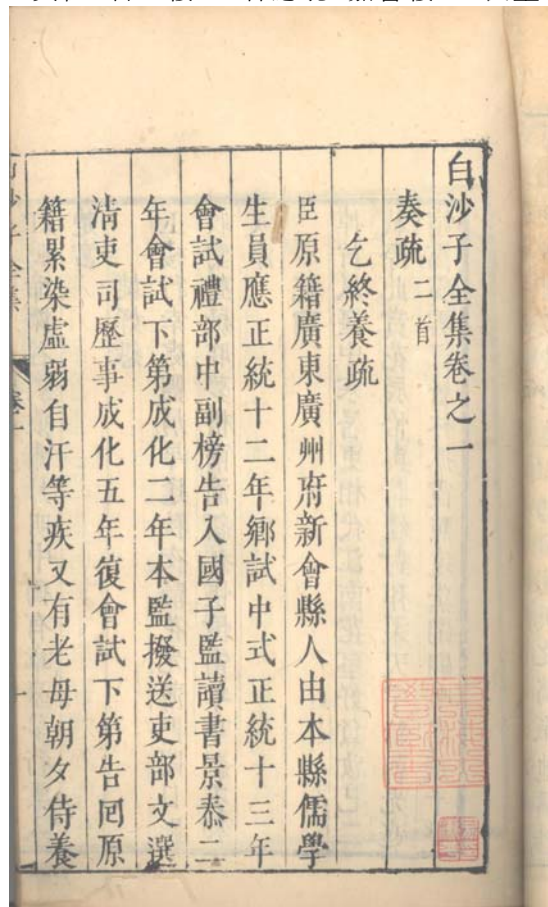 白沙子全集卷之一
奏疏二首
乞終養疏
臣原籍廣東廣州府新會縣人由本縣儒學
生員應正統十二年鄉試中式正統十三年
會試禮部中副榜告入國子監讀書景泰二
年會試下第成化二年本監撥送吏部文選
清吏司歷事成化五年復會試下第告囘原
籍累染虛弱自汗等疾又有老母朝夕侍養